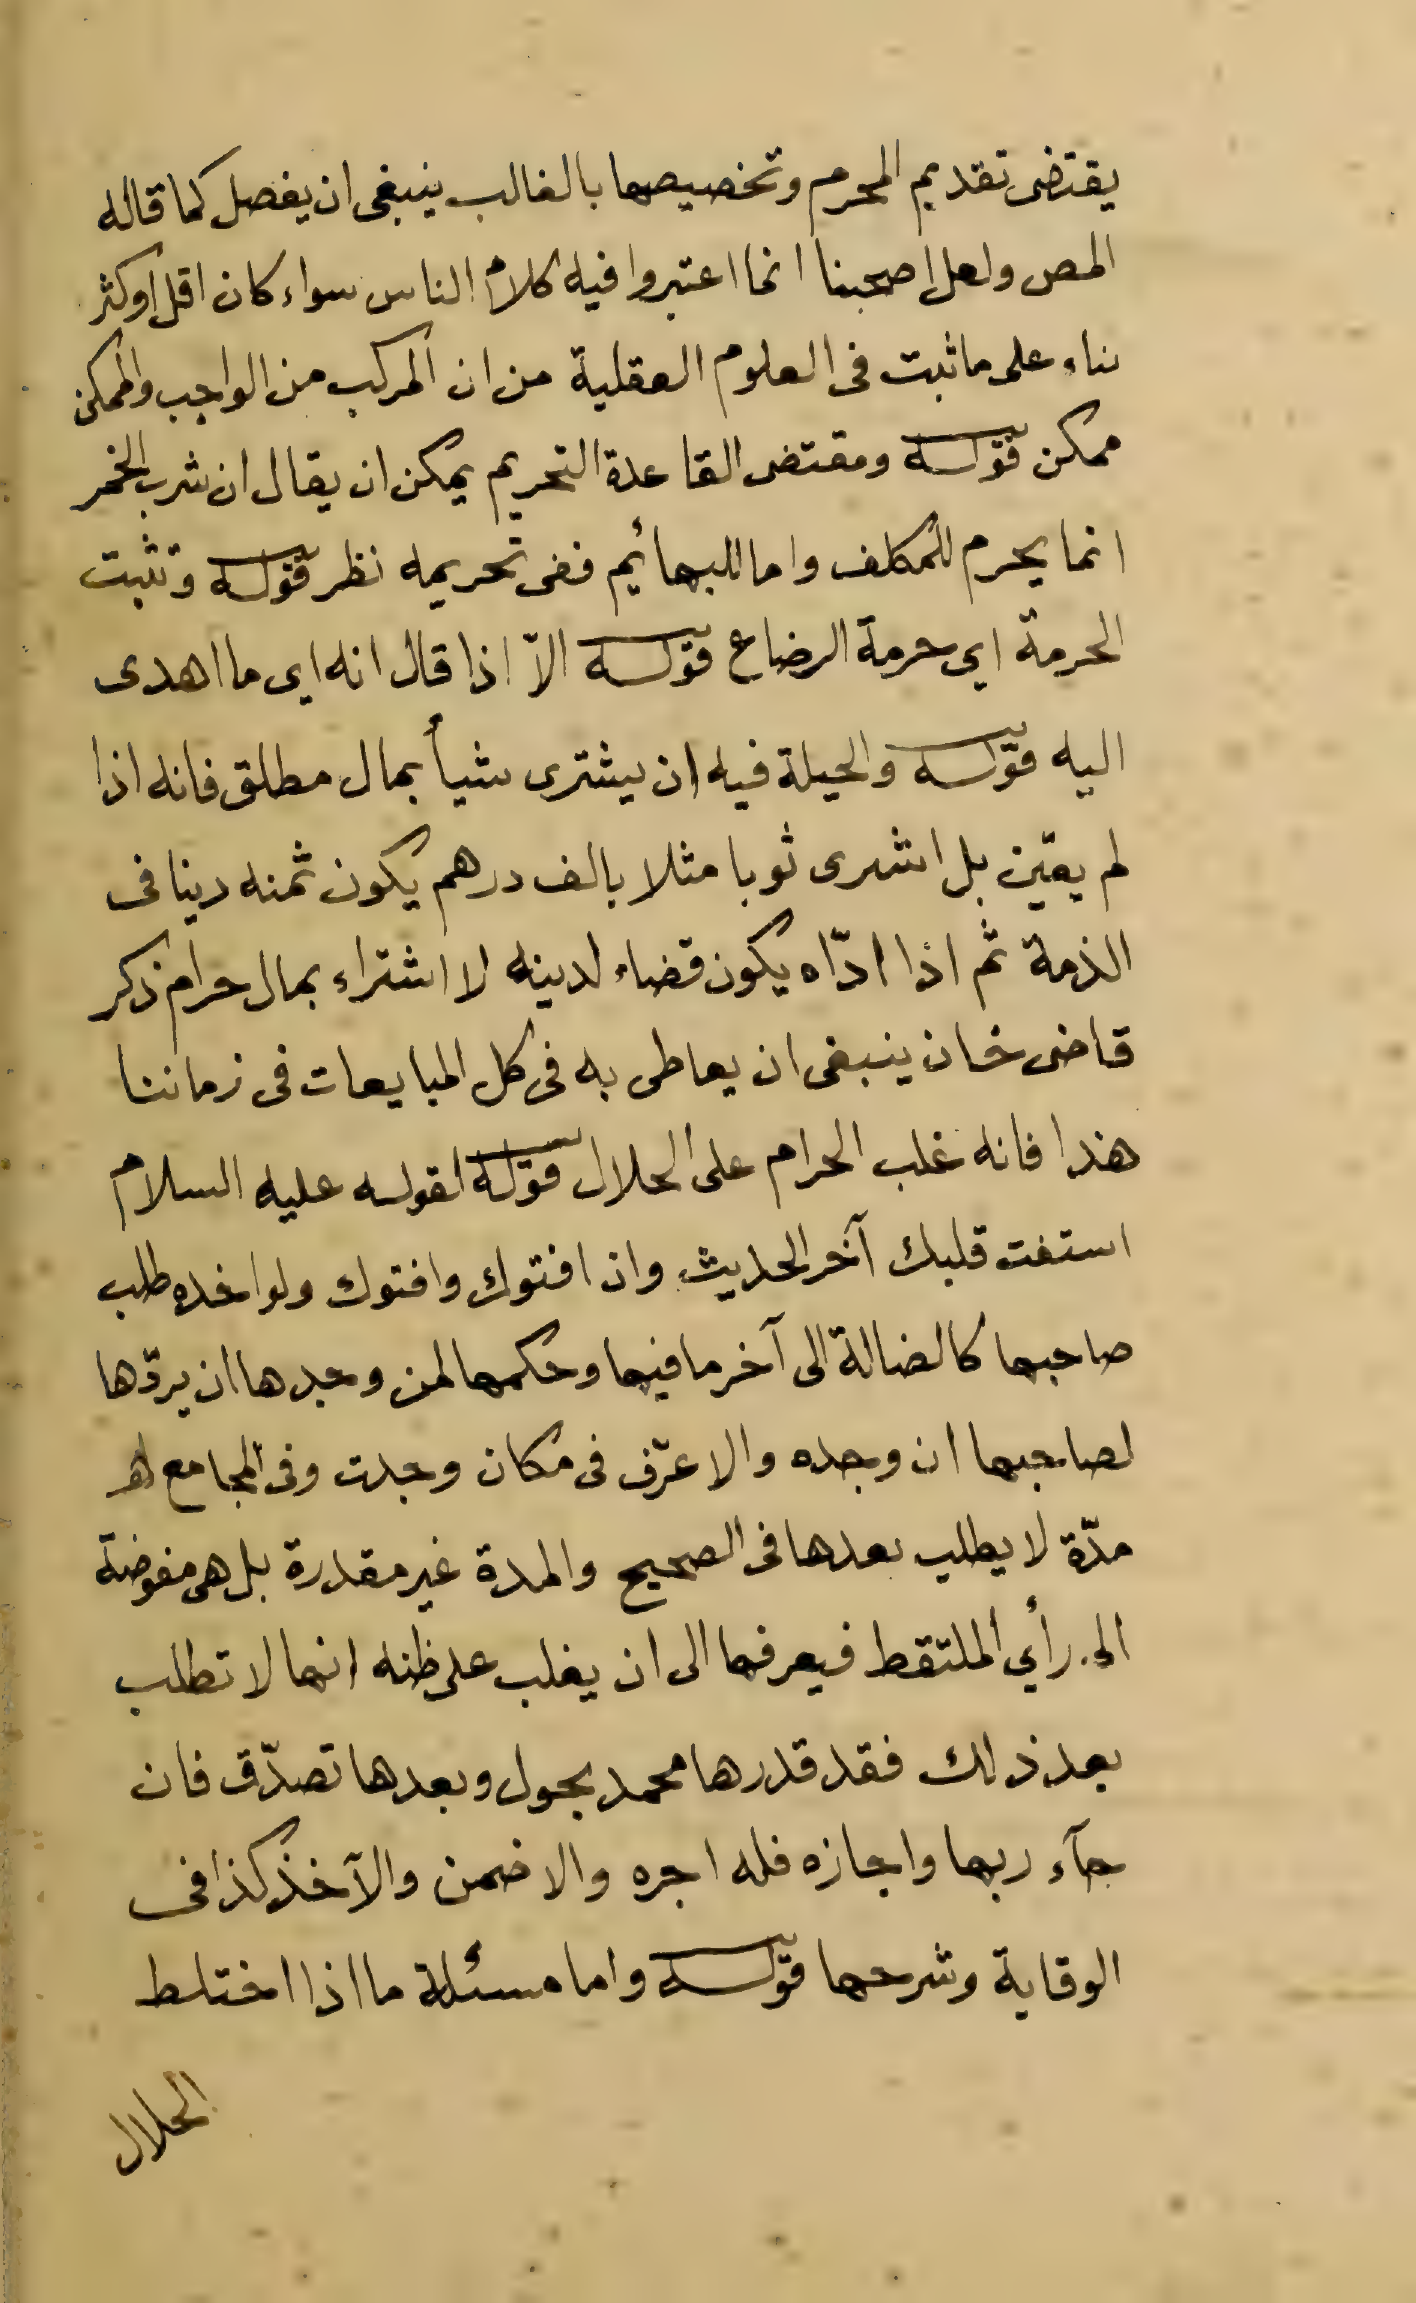 يقتضى تقديم المحرم وتخصيصها بالغالب ينبغى ان يفصل كما قاله
المص ولعل اصحبنا انما اعتبروا فيه كلام الناس سواء كان اقل او كثر
بناء على ما ثبت فى العلوم العقلية من ان المركب من الواجب والممكن
ممكن قوله ومقتضى القاعدة التحريم يمكن ان يقال ان شرب الخمر
انما يحرم للمكلف واما للبهائم ففى تحريمه نظر قوله وتثبت
الحرمة اى حرمة الرضاع قوله الاّ اذا قال انه اى ما اهدى
اليه قوله والحيلة فيه ان يشترى شيأ بمال مطلق فانه اذا
لم يعيّن بل اشرى ثوبا مثلا بالف درهم يكون ثمنه دينا فى
الذمة ثم اذا ادّاه يكون قضاء لدينه لا اشتراء بمال حرام ذكر
قاضى خان ينبغى ان يعاطى به فى كل المبايعات فى زماننا
هذا فانه غلب الحرام على الحلال قوله لقوله عليه السلام
استفت قلبك آخر الحديث وان افتوك وافتوك ولو اخذه طلب
صاحبها كالضالة الى آخر ما فيها وحكمها لمن وجدها ان يردّها
لصاحبها ان وجده والا عرّف فى مكان وجدت وفى المجامع
مدّة لا يطلب بعدها فى الصحيح والمدة غير مقدرة بل هى مفوضة
الى رأي الملتقط فيعرفها الى ان يغلب على ظنه انها لا تطلب
بعد ذلك فقد قدرها محمد بحول وبعدها تصدّق فان
جآء ربها واجازه فله اجره والا ضمن والآخذ كذا فى
الوقاية وشرحها قوله واما مسئلة ما اذا اختلط
الحلال